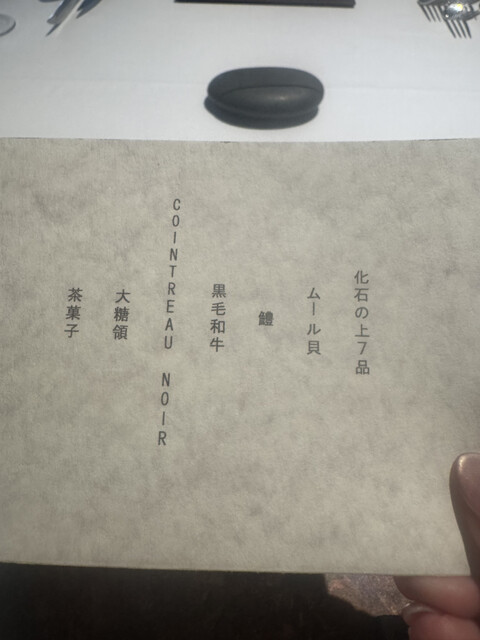 化石の上7品
ムール貝
鱧
黒毛和牛
COINTREAU NOIR
大糖領
茶菓子